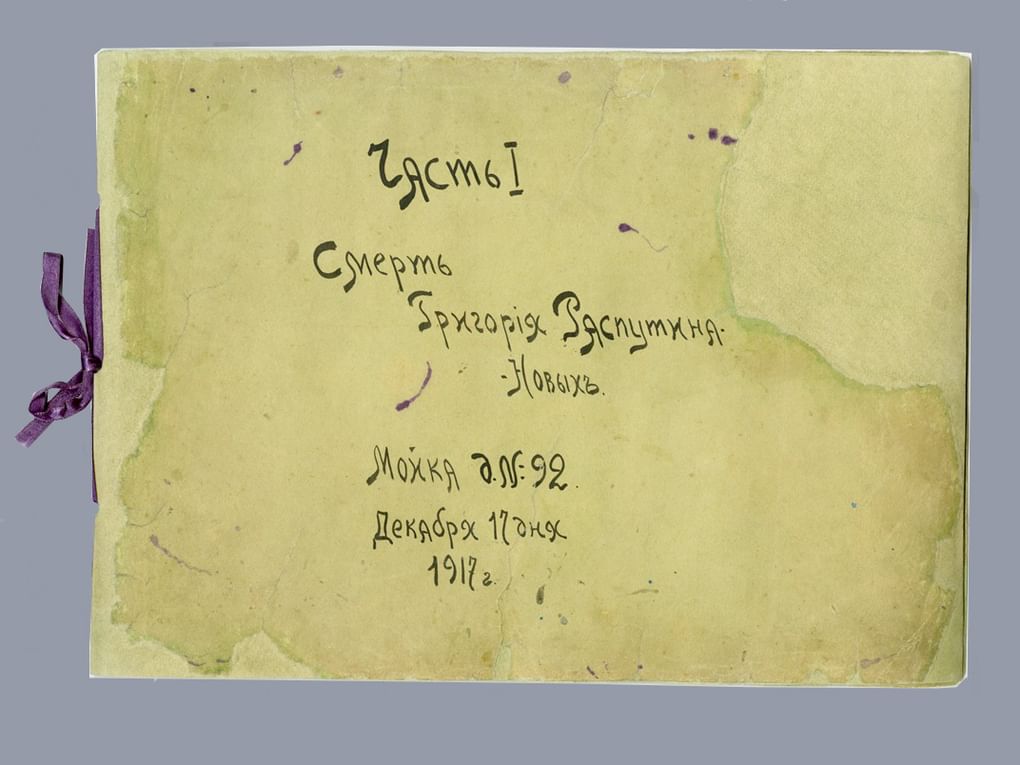 Часть I
Смерть
Григорія Распутина-
-Новыхъ.
Мойка д. №: 92.
Декабря 17 дня
1917 г.